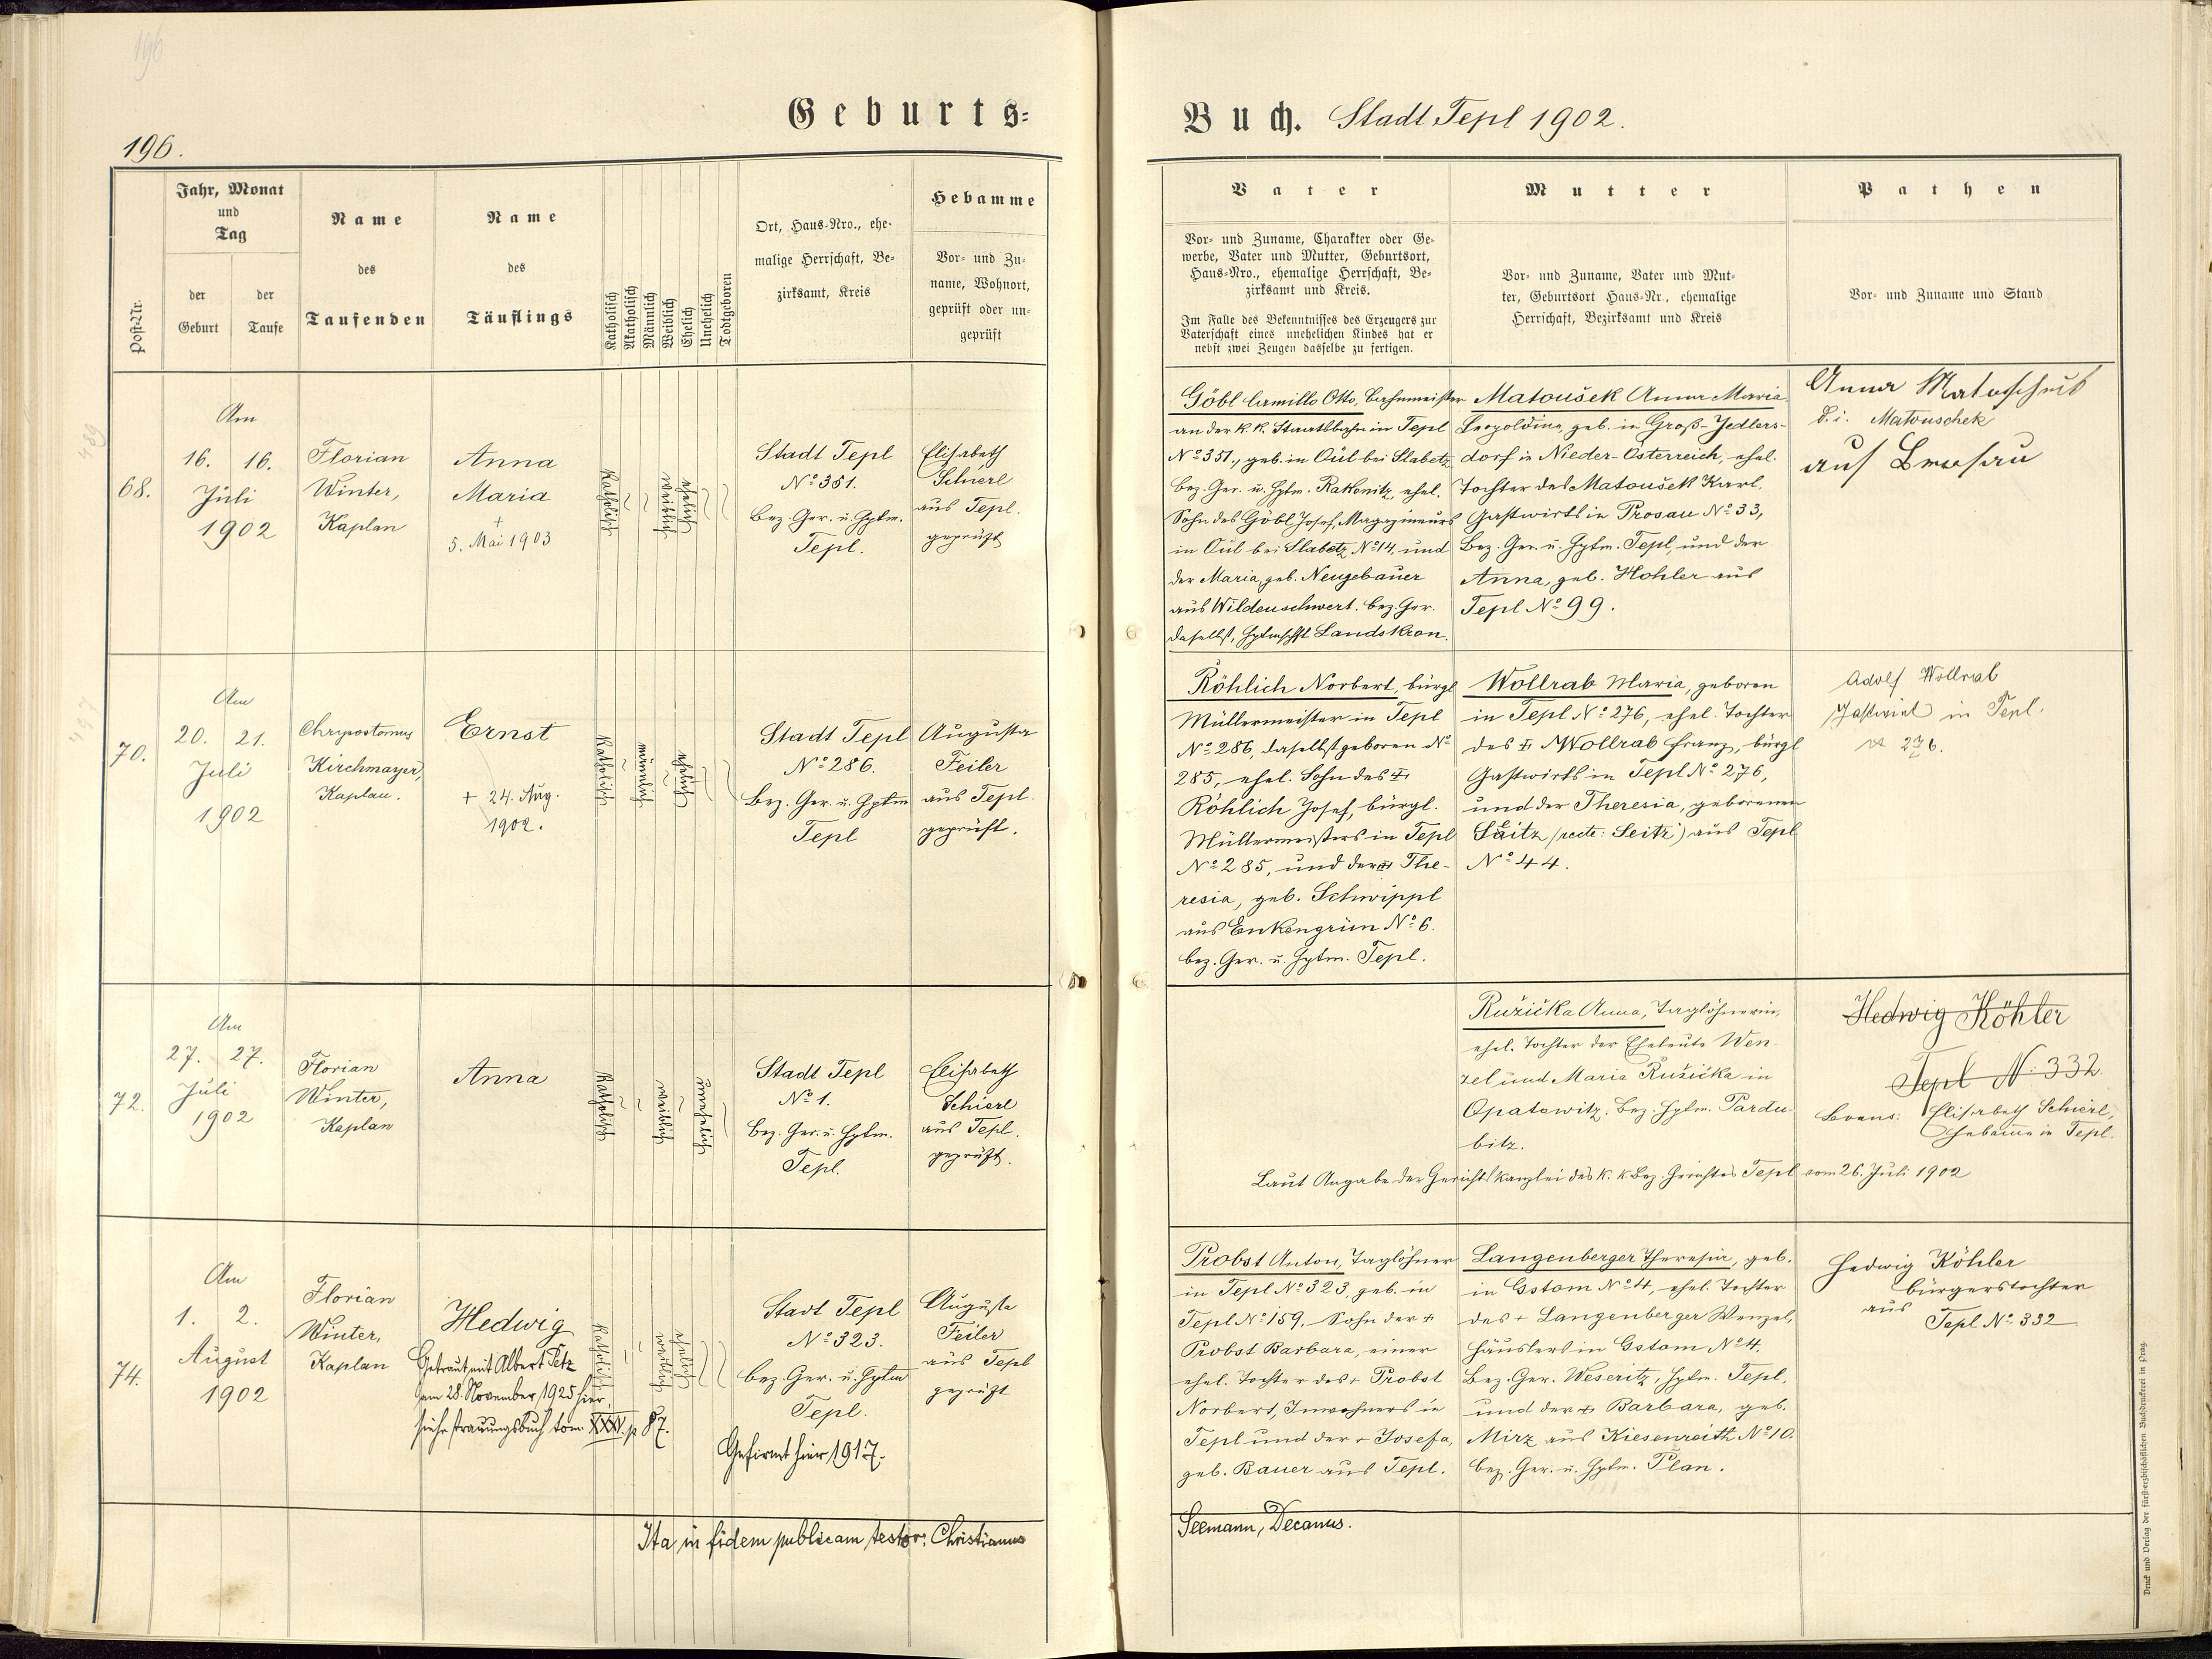 196
Geburts=
Buch. Stadt Tepl 1902.
196.
Post-Nr.
Jahr, Monat
und
Tag
der
Geburt
der
Taufe
Name
des
Taufenden
Name
des
Täuflings
Katholisch
Akatholisch
Männlich
Weiblich
Ehelich
Unehelich
Todtgeboren
Ort, Haus-Nro., ehe-
malige Herrschaft, Be-
zirksamt, Kreis
Hebamme
Vor- und Zu-
name, Wohnort,
geprüft oder un-
geprüft
Vater
Vor- und Zuname, Charakter oder Ge-
werbe, Vater und Mutter, Geburtsort,
Haus-Nro., ehemalige Herrschaft, Be-
zirksamt und Kreis.
Im Falle des Bekenntnisses des Erzeugers zur
Vaterschaft eines unehelichen Kindes hat er
nebst zwei Zeugen dasselbe zu fertigen.
Mutter
Vor- und Zuname, Vater und Mut-
ter, Geburtsort Haus-Nr., ehemalige
Herrschaft, Bezirksamt und Kreis
Pathen
Vor- und Zuname und Stand
68.
Am
16. 16.
Juli
1902
Florian
Winter,
Kaplan
Anna
Maria
+
5. Mai 1903
katholisch
weiblich
ehelich
Stadt Tepl
No 351.
Bez. Ger. u. Hptm.
Tepl.
Elisabeth
Schierl
aus Tepl.
geprüft
Göbl Camillo Otto, Bahnmeister
an der k. k. Staatsbahn in Tepl
No 351., geb. in Aul bei Slabetz,
Bez. Ger. u. Hptm. Rakonitz, ehel.
Sohn des Göbl Josef, Magazineurs
in Aul bei Slabetz No 14, und
der Maria, geb. Neugebauer
aus Wildenschwert. Bez. Ger.
daselbst, Hptmschft Landskron.
Matoušek Anna Maria
Leopoldine, geb. in Groß-Jedlers-
dorf in Nieder-Österreich, ehel.
Tochter des Matoušek Karl,
Gastwirts in Prosau No 33,
Bez. Ger. u. Hptm. Tepl, und der
Anna, geb. Hohler aus
Tepl No 99.
Anna Matoschek
d. i. Matouschek
aus
70.
Am
20. 21.
Juli
1902
Chrysostomus
Kirchmayer,
Kaplan.
Ernst
+ 24. Aug.
1902.
katholisch
männlich
ehelich
Stadt Tepl
No 286.
Bez. Ger. u. Hptm
Tepl
Augusta
Feiler
aus Tepl.
geprüft.
Röhlich Norbert, bürgl
Müllermeister in Tepl
No 286, daselbst geboren No
285, ehel. Sohn des +
Röhlich Josef, bürgl.
Müllermeisters in Tepl
No 285, und der + The-
resia, geb. Schwippl
aus Enkengrün No 6.
Bez. Ger. u. Hptm. Tepl.
Wollrab Maria, geboren
in Tepl No 276, ehel. Tochter
des + Wollrab Franz, bürgl
Gastwirts in Tepl No 276,
und der Theresia, geborenen
Säitz (recte: Seitz) aus Tepl
No 44.
Adolf Wollrab
Gastwirt in Tepl.
No 276.
72.
Am
27. 27.
Juli
1902
Florian
Winter,
Kaplan
Anna
katholisch
weiblich
unehelich
Stadt Tepl
No 1.
Bez. Ger. u. Hptm.
Tepl.
Elisabeth
Schierl
aus Tepl.
geprüft.
Ružička Anna, Taglöhnerin,
ehel. Tochter der Eheleute Wen-
zel und Maria Ružička in
Opatowitz, Bez. Hptm. Pardu-
bitz.
Hedwig Köhler
Tepl No 332.
Levans: Elisabeth Schierl,
Hebamme in Tepl.
Laut Angabe der Gerichtskanzlei des k. k. Bez. Gerichtes Tepl vom 26. Juli 1902
74.
Am
1. 2.
August
1902
Florian
Winter,
Kaplan
Hedwig
Getraut mit Albert Petz
am 28. November 1925 hier,
siehe Trauungsbuch tom. XXV. p 87.
katholisch
weiblich
ehelich
Stadt Tepl
No 323.
Bez. Ger. u. Hptm
Tepl.
Gefirmt hier 1917.
Augusta
Feiler
aus Tepl
geprüft
Probst Anton, Taglöhner
in Tepl No 323, geb. in
Tepl No 159, Sohn der +
Probst Barbara, einer
ehel. Tochter des + Probst
Norbert, Inwohners in
Tepl und der + Josefa,
geb. Bauer aus Tepl.
Langenberger Theresia, geb.
in Gstom No 4, ehel. Tochter
des + Langenberger Wenzel,
Häuslers in Gstom No 4.
Bez. Ger. Weseritz, Hptm. Tepl,
und der + Barbara, geb.
Mirz aus Kiesenreith No 10.
Bez. Ger. u. Hptm. Plan.
Hedwig Köhler
Bürgerstochter
aus
Tepl No. 332
Ita in fidem publicam testor: Christianus
Seemann, Decanus.
Druck und Verlag der fürsterzbischöflichen Buchdruckerei in Prag.